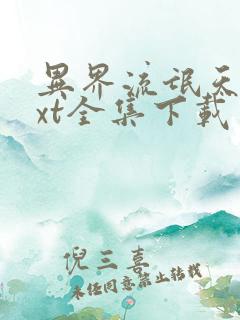 異界流氓天
xt全集下載
倪三喜
未经同意禁止转载